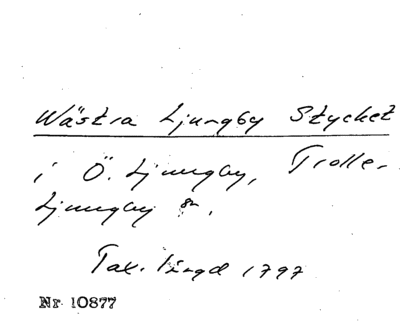 Wästra Ljungby Stycket
i Ö. Ljungby, Trolle-
Ljungby sn.
Tax. längd 1797
Nr 10877